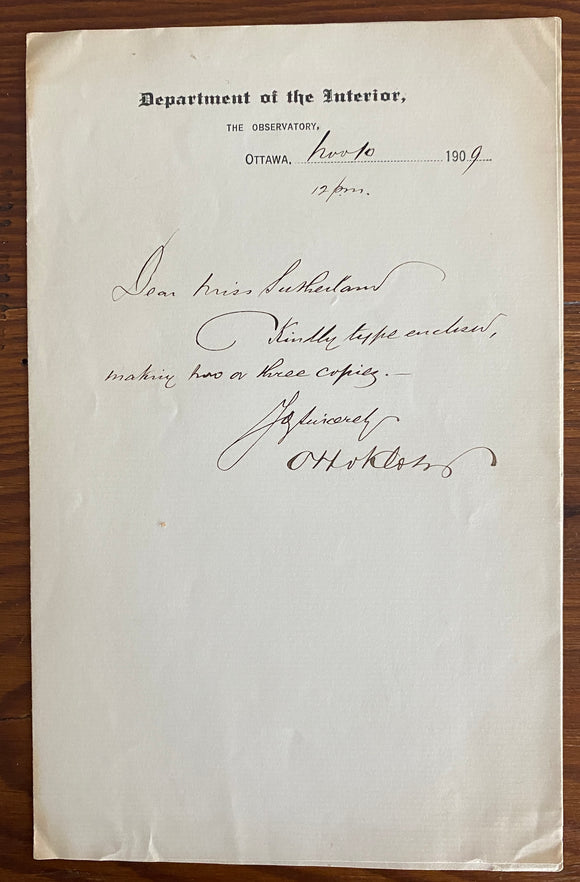 Department of the Interior,
THE OBSERVATORY,
OTTAWA, Nov 10 1909
12 p.m.
Dear Miss Sutherland
Kindly type enclosed,
making two or three copies. —
Yrs sincerely
Otto Klotz